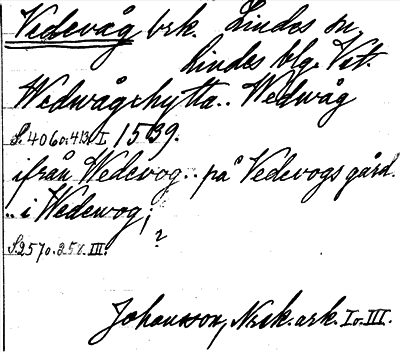 Vedevåg brk. Lindes sn,
Lindes blg. Vstm.
Wedwåg hytta.. Wedwåg
S. 406 o. 413. I. 1539.
ifrån Wedevog.. på Vedevogs gård.
.. i Wedewog;
?
S. 257 o. 258. III.
Johansson, Nrsk. ark. I o. III.